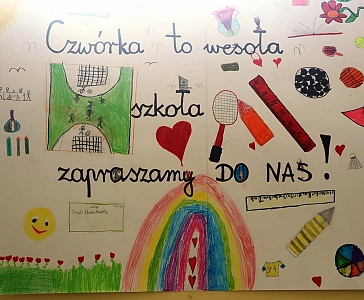 Czwórka to wesoła
szkoła
zapraszamy DO NAS!